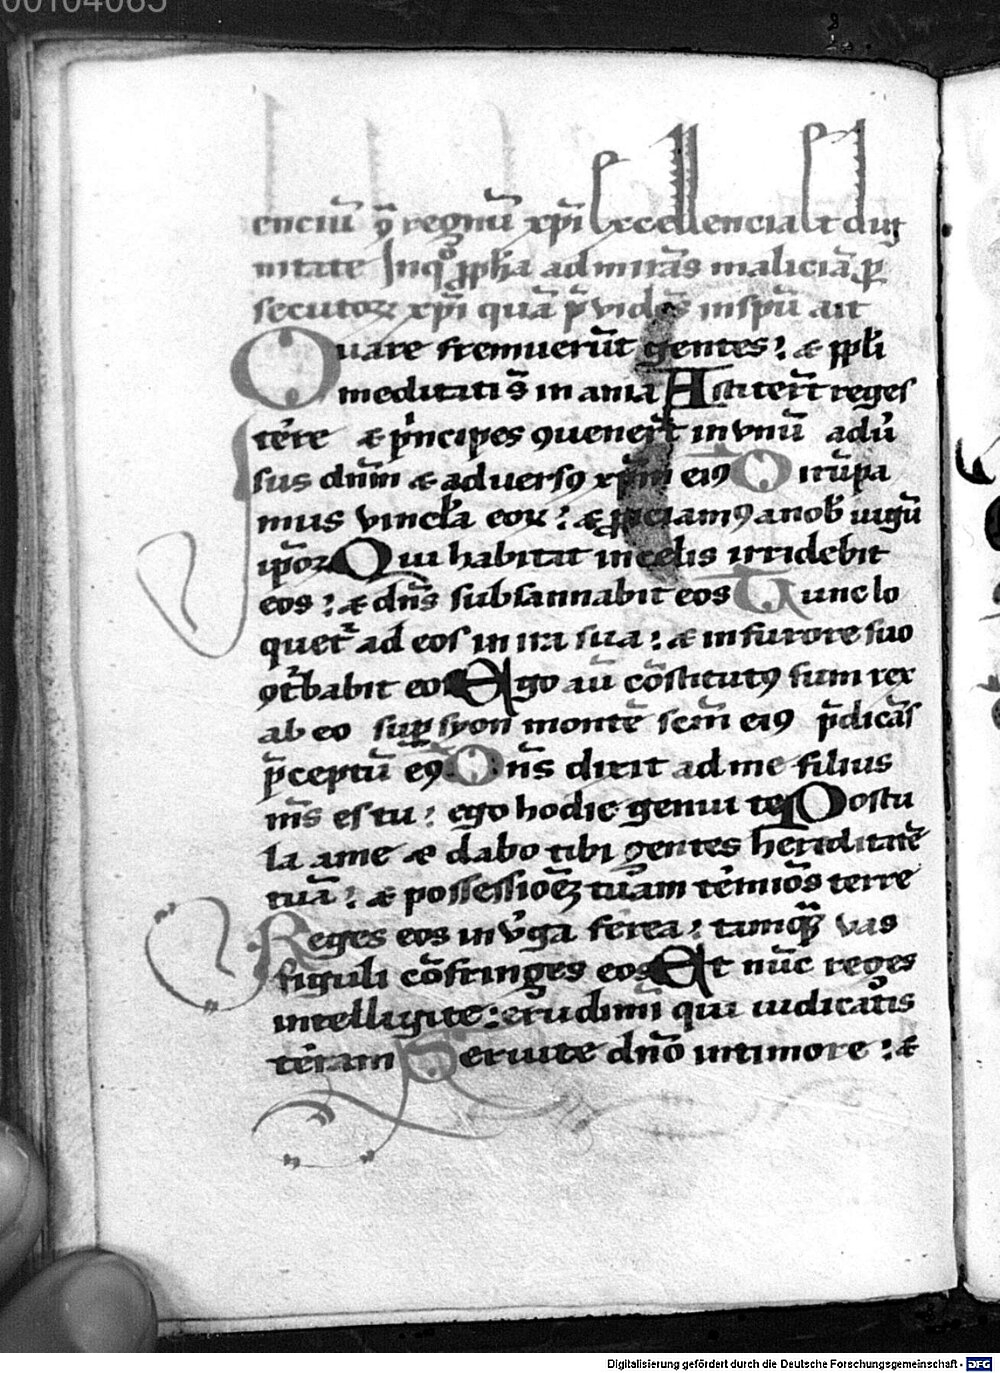 00104085
enciū ꝯ regnū xp̄i Excellencia Et dig
nitate In qͦ ꝓph̄a admirās maliciā ꝑ
secutoꝝ xp̄i quā p̄ vidēs in spū ait
Quare fremuerūt gentes : ⁊ ppl̄i
meditati s̄ in ania Astiter̄t reges
tēre ⁊ p̄ncipes ꝯuener̄t in vnū adū
sus dnm̄ ⁊ adversꝯ xp̄m eiꝯ Dirūpa
mus vincl̄a eoꝝ : ⁊ ꝓiciamꝯ a nob̄ iugū
ip̄oꝝ Qui habitat in celis irridebit
eos : ⁊ dn̄s subsannabit eos Tunc lo
quet᷑ ad eos in ira sua : ⁊ in furore suo
ꝯt̄babit eos Ego aū cōstitutꝯ sum rex
ab eo suꝑ syon montē scm̄ eiꝯ p̄dicās
p̄ceptū eꝯ Dn̄s dixit ad me filius
m̄s es tu : ego hodie genui te Postu
la a me ⁊ dabo tibi gentes hereditatē
tuā : ⁊ possessiōeꝫ tuam tēminōs terre
Reges eos in v̄ga ferea : tamqꝫ vas
figuli cōfringes eos Et nūc reges
intelligite : erudimī qui iudicatis
tēram Seruite dn̄o in timore : ⁊
Digitalisierung gefördert durch die Deutsche Forschungsgemeinschaft - DFG